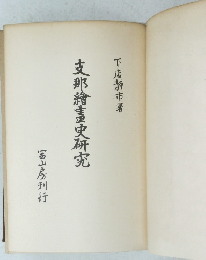 下店静市著
支那繪畫史研究
冨山房刊行